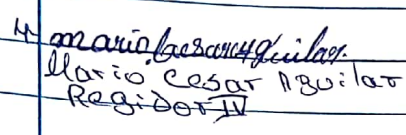 4 mario Cesar Aguilar
Mario Cesar Aguilar
Regidor IV